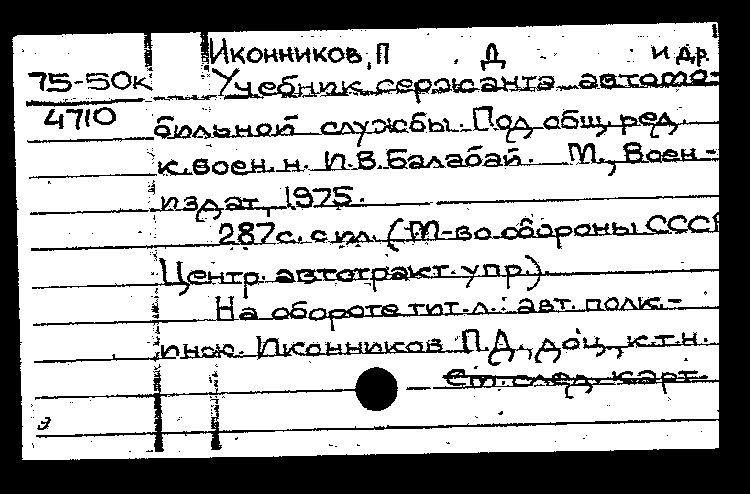 Иконников, П Д и др.
75-50к Учебник сержанта автомо-
4710 бильной службы. Под общ. ред.
к.воен.н. И.В.Балабай. М., Воен-
издат, 1975.
287с. с ил. (М-во обороны СССР
Центр. автотракт. упр.).
На обороте тит.л.: авт. полк.-
инж. Иконников П.Д., доц., к.т.н.
См. след. карт.